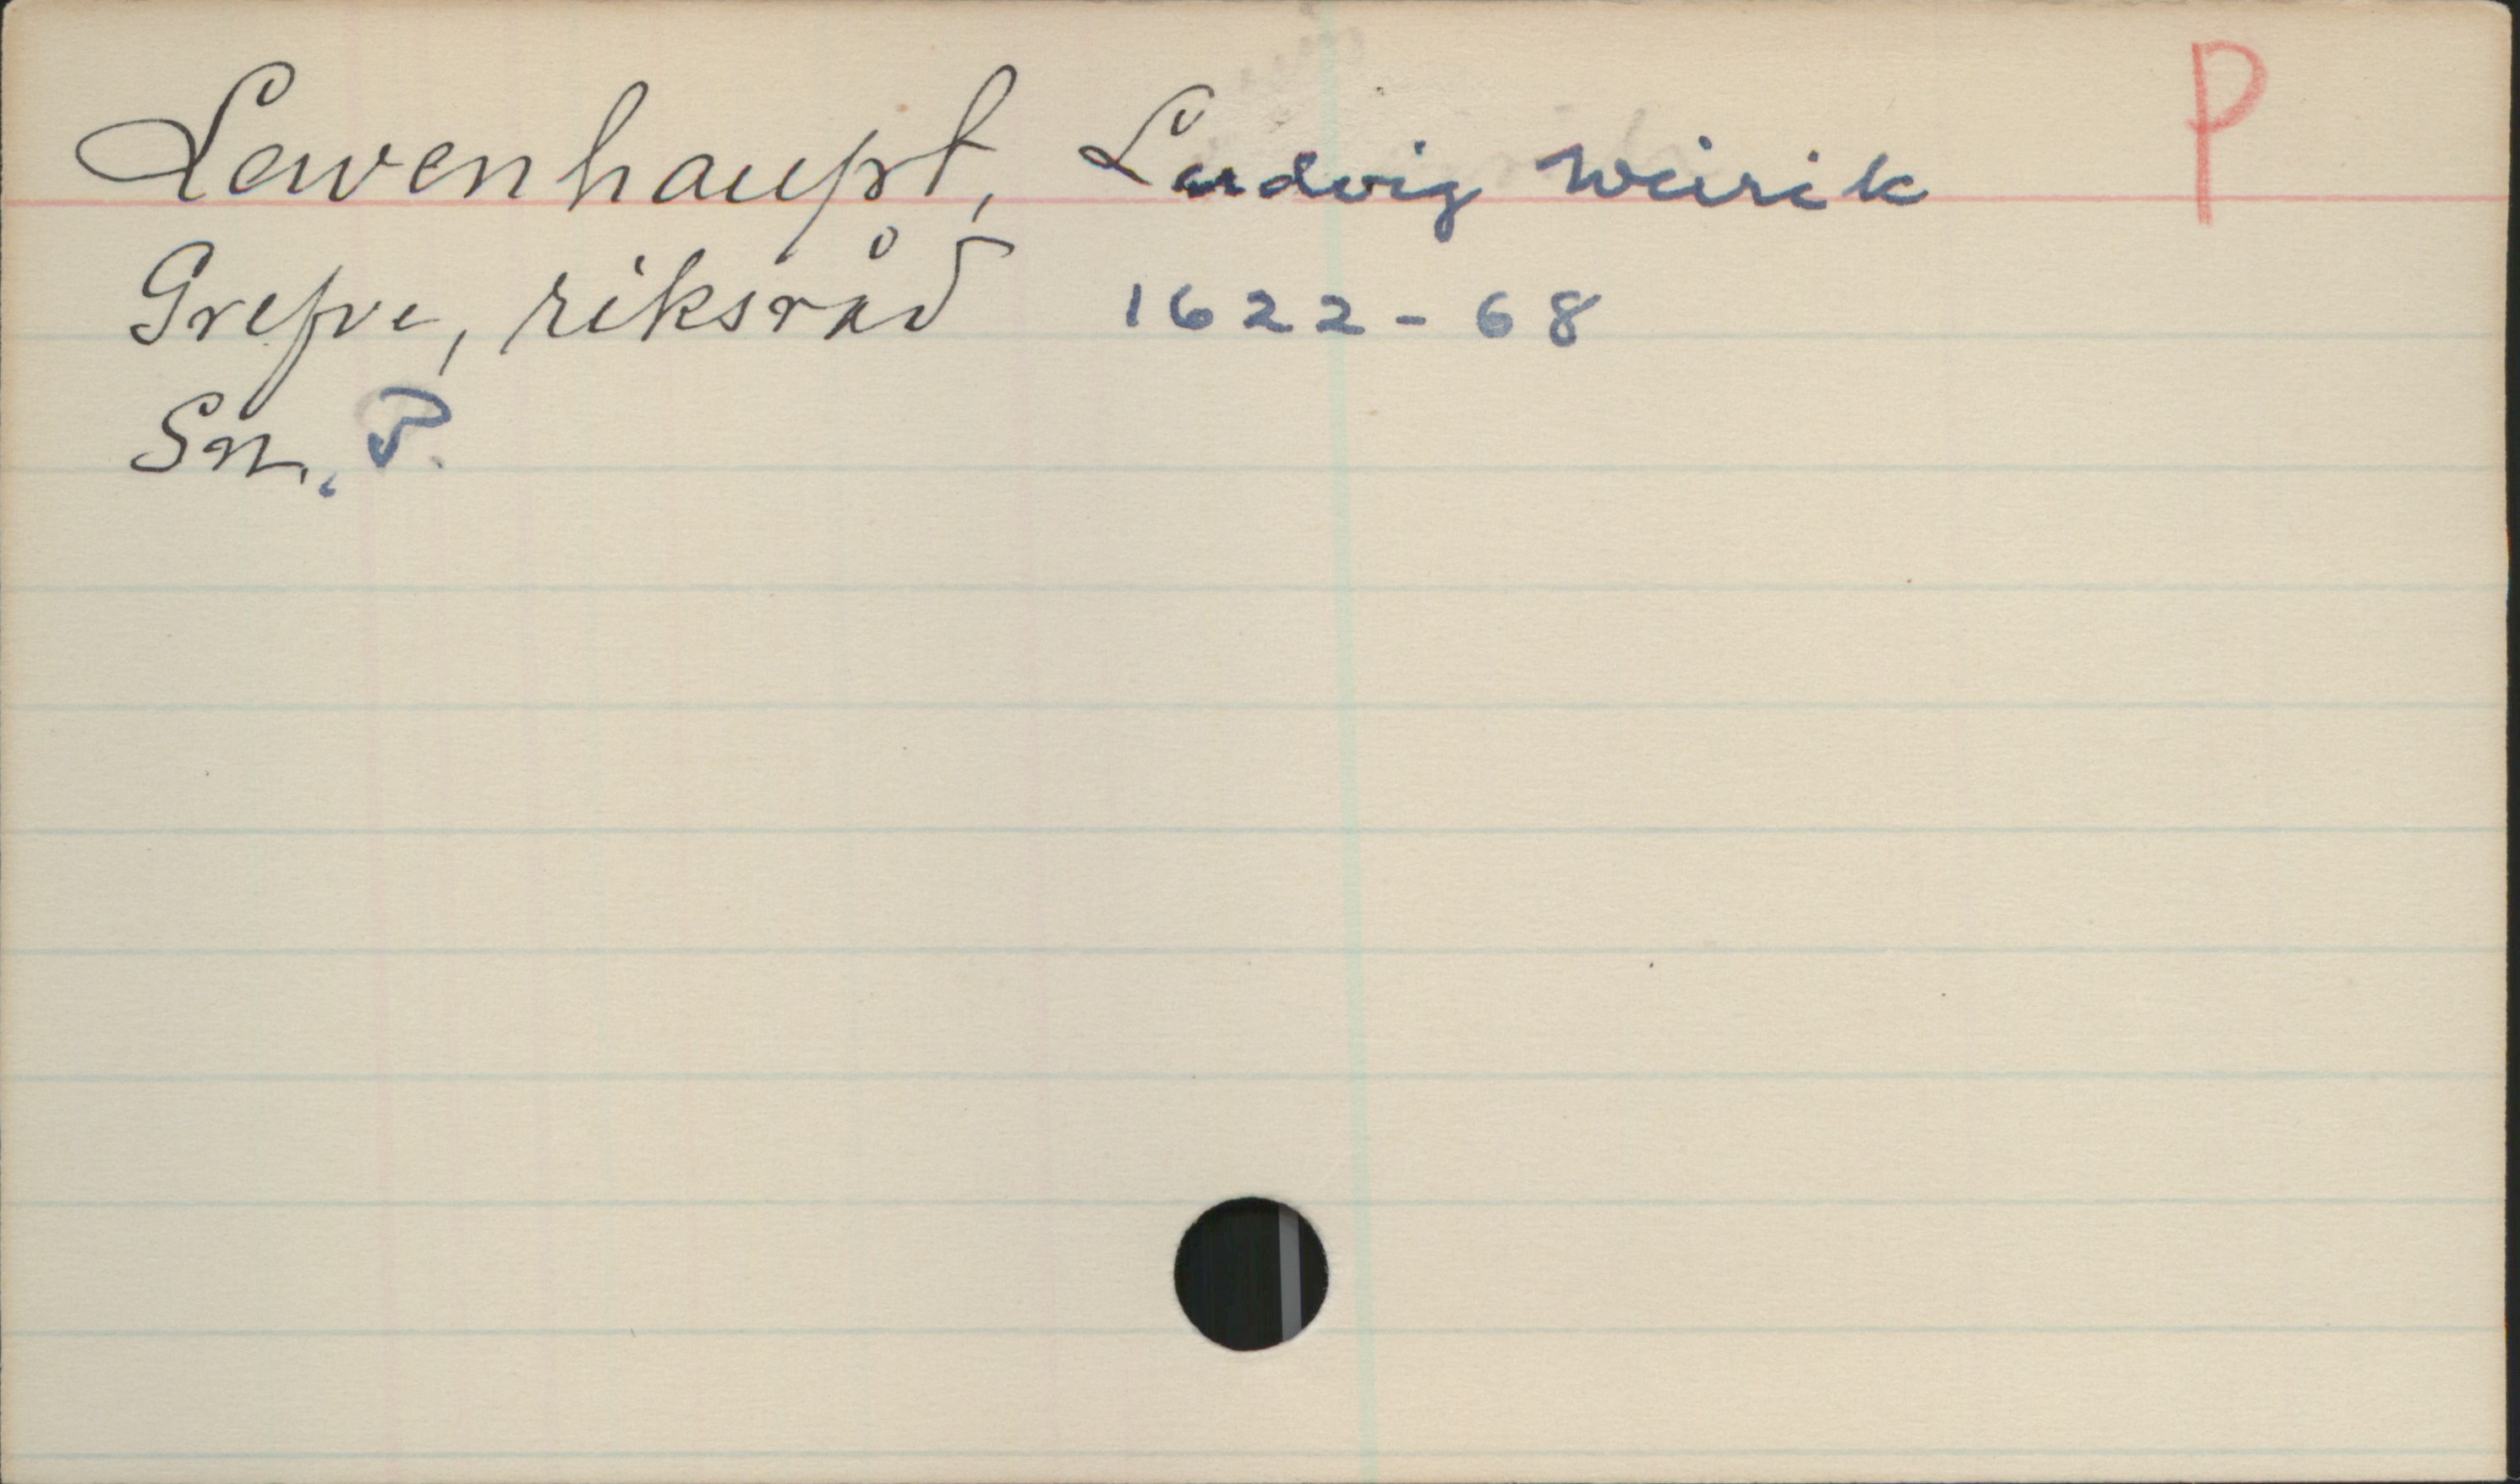 Lewenhaupt, Ludvig Weirik P
Grefve, riksråd 1622-68
Sn., P.